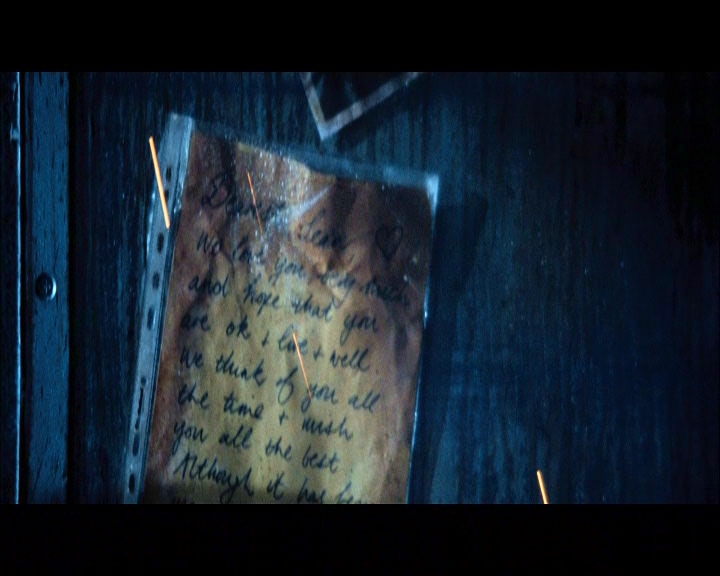 We love you very much
and hope that you
are ok + live + well.
We think of you all
the time + wish
you all the best
Although it has been